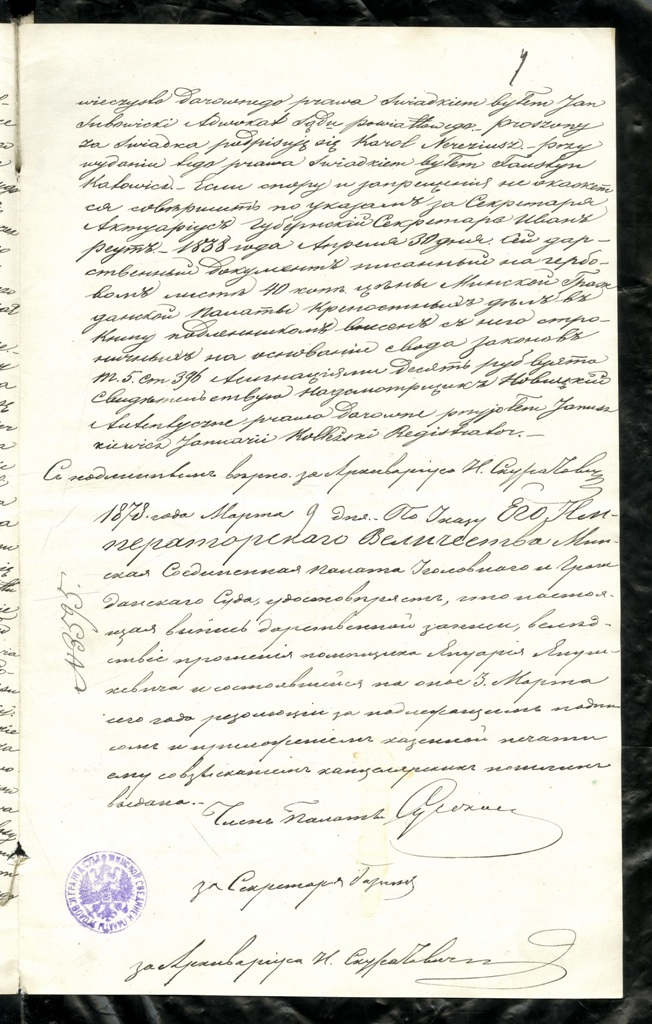 wieczysto Darownego prawa Swiadkiem bytem Jan
Adwokat Sądu powiattowego. proszony
za Swiadka podpisuję się Karol przy
wydaniu tego prawa Swiadkiem bytem
Katowicz Если спору и запрещения не окажет
ся совѣршить по указамъ за Секретаря
Актуаріусъ Губернскій Секретарь Иванъ
Реутъ. 1838 года Апрѣля 30 дня. Сей дар-
ственный документъ писанный на гербо-
вомъ листѣ 40 коп. цѣны Минской Граж
данской Палаты Крѣпостныхъ дѣлъ въ
Книгу подлинникомъ внисенъ съ него стро-
ничныхъ на основаніи свода законовъ
т. 5. ст 396 Асигнаціями десять руб взято
свидѣтельствую Надсмотрщикъ Новицкій
Autentyczne prawo Darowne przyjotem Janusz
kiewicz Januarii Registrator.
Съ подлиннымъ вѣрно: за Архиваріуса И. Скуратовичъ
1878. года Марта 9 дня. По Указу Его Им-
ператорскаго Величества Мин-
ская Соединенная Палата Уголовнаго и Граж
данскаго Суда, удостовѣряетъ, что настоя-
щая выпись дарственной записи, вслѣд-
ствіе прошенія помѣщика Януарія Януш-
кевича и состоявшейся на оное 3. Марта
сего года резолюціи за надлежащимъ подпи
сомъ и приложеніемъ казенной печати
ему со взысканіемъ канцелярскихъ пошлинъ
выдана.
№ 3595.
Членъ Палаты
за Секретаря
за Архиваріуса И. Скуратовичъ